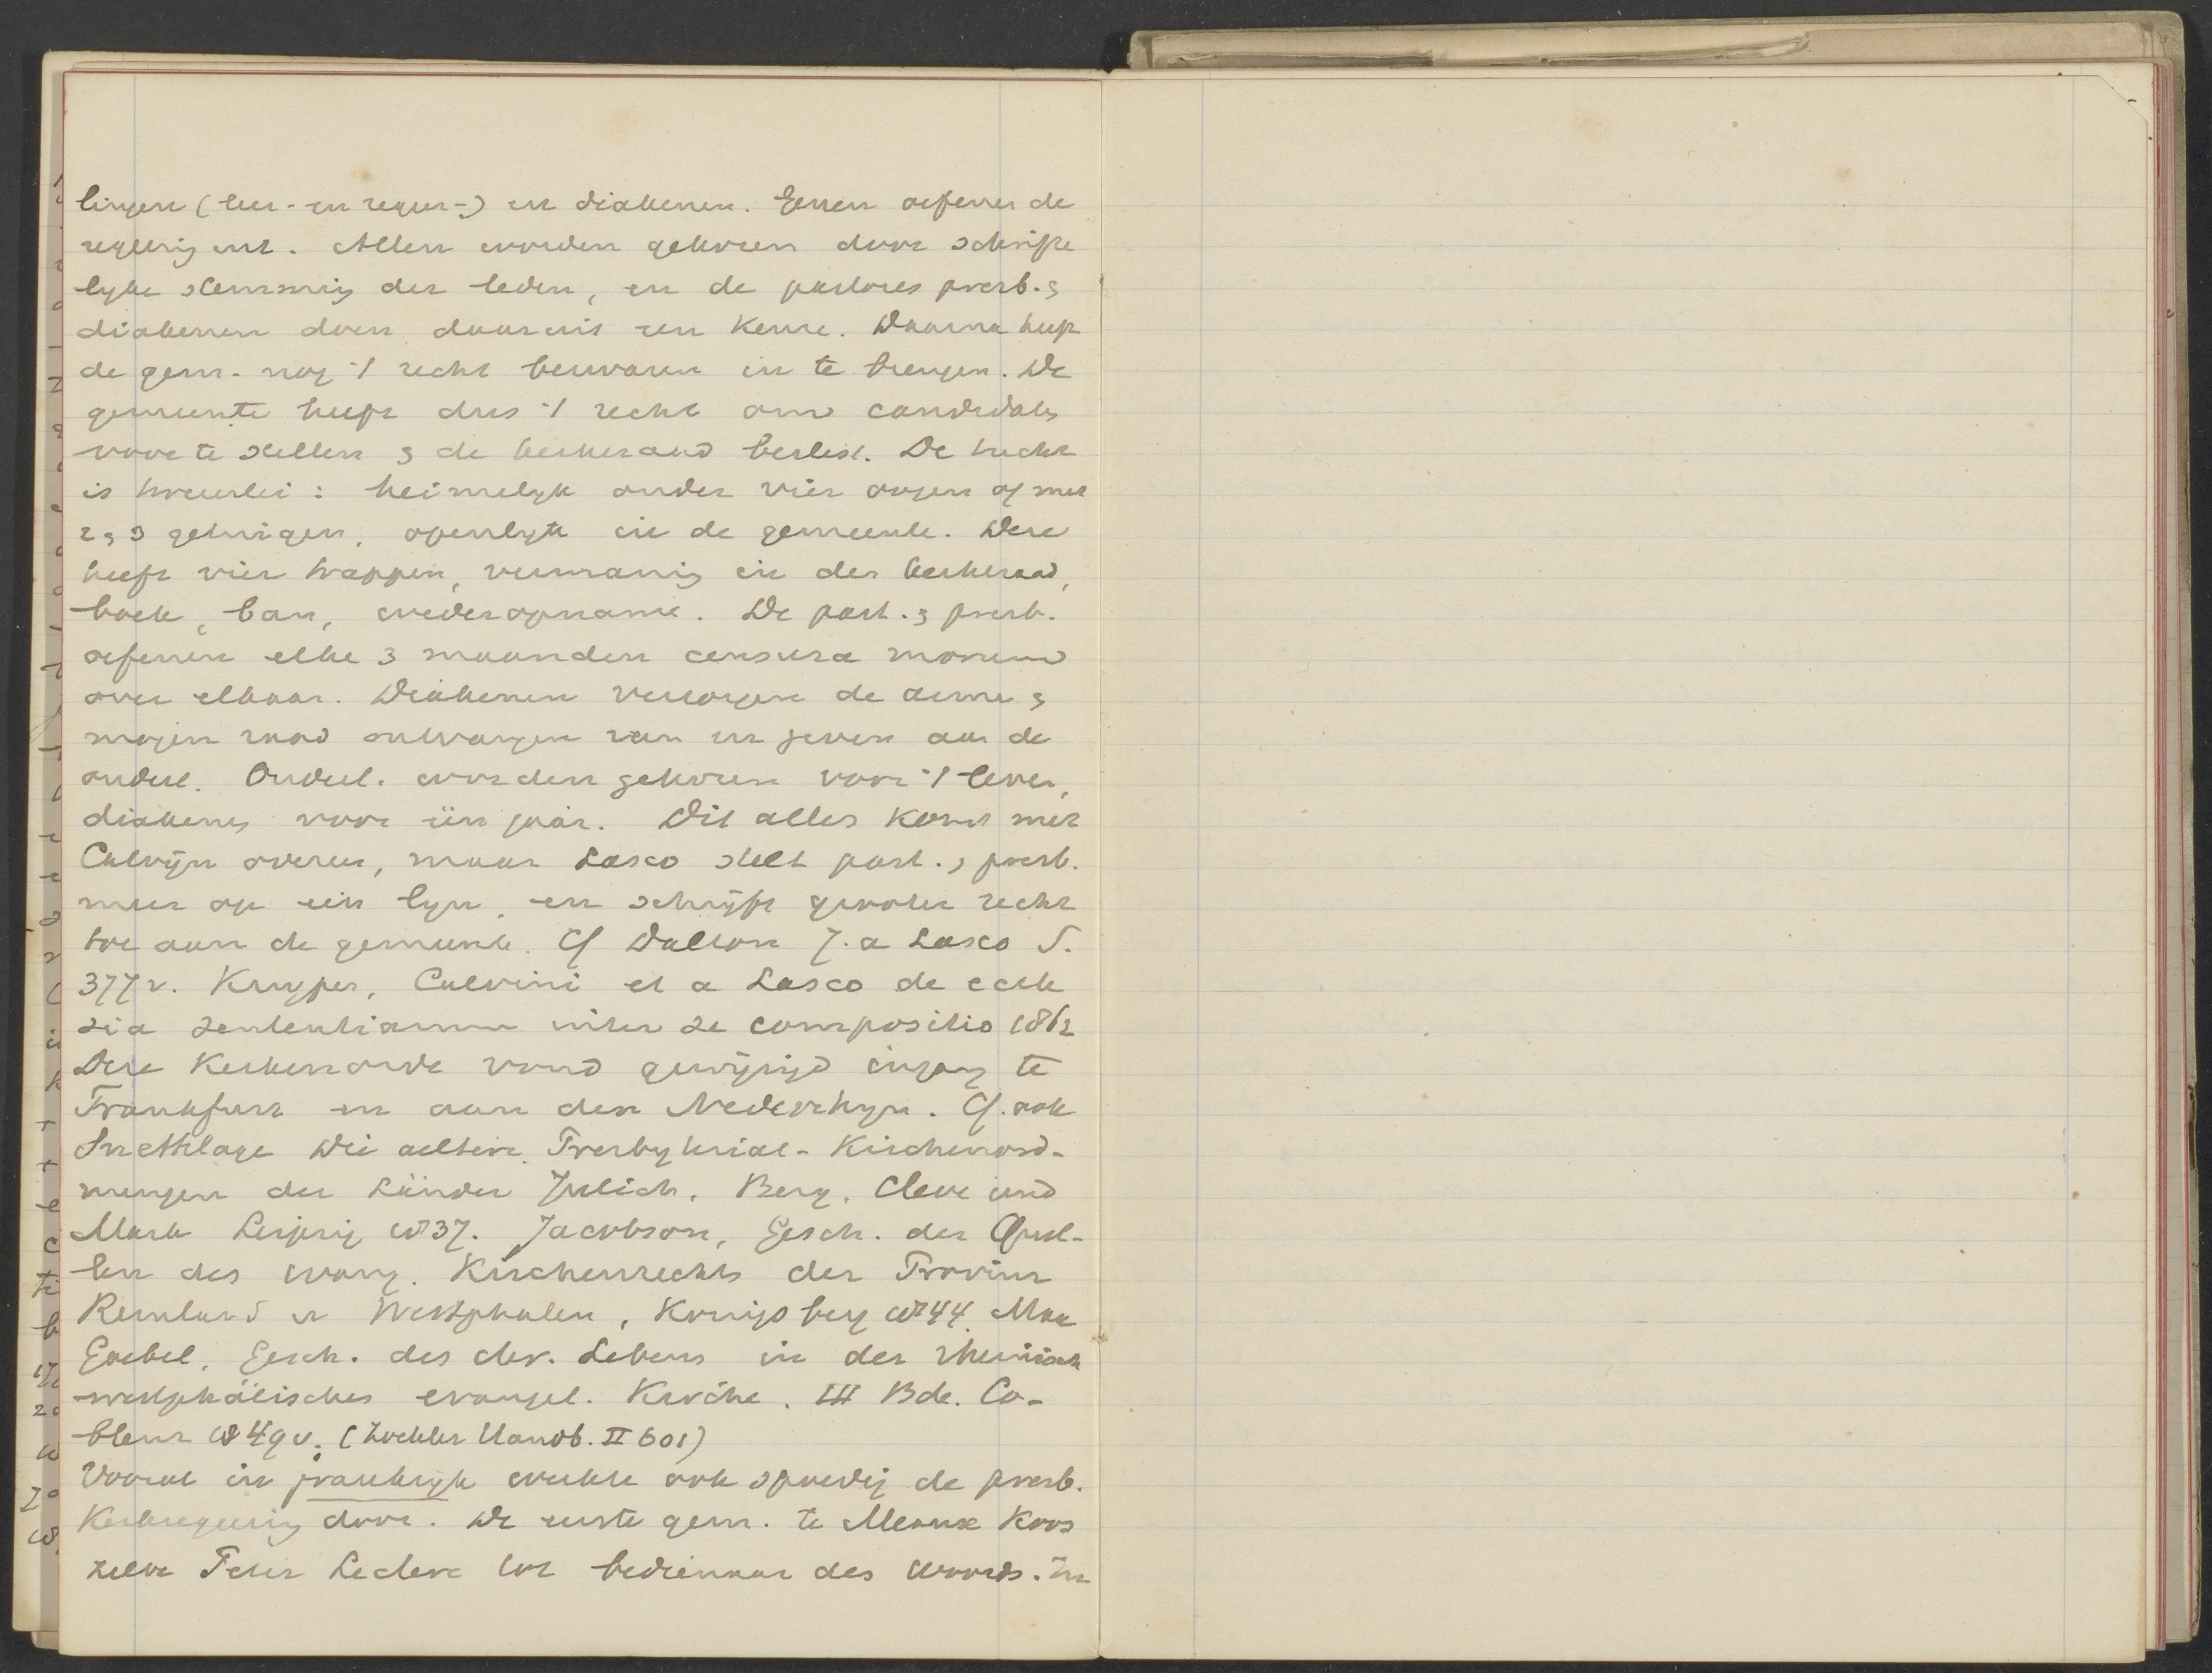 lingen (leer- en regeer-) en diakenen. Genen oefenen de
regeering uit. Allen worden gekozen door schrifte
lyke stemming der leden, en de pastores presb. &
diakenen doen daaruit een keuze. Daarna heeft
de gem. nog 't recht bezwaren in te brengen. De
gemeente heeft dus 't recht om candidats
voor te stellen & de kerkeraad beslist. De tucht
is tweeerlei: heimelyk onder vier oogen of met
2 & 3 getuigen, openlyk in de gemeente. Deze
heeft vier trappen, vermaning in der kerkeraad,
boete, ban, wederopname. De past. & presb.
oefenen elke 3 maanden censura morum
over elkaar. Diakenen verzorgen de arme &
mogen raad ontvangen van en geven aan de
ouderl. Ouderl. worden gekozen voor 't leven,
diakenen voor één jaar. Dit alles komt met
Calvijn overeen, maar Lasco stelt past. & presb.
meer op één lyn, en schrijft grooter recht
toe aan de gemeente. Cf Dalton J. a Lasco S.
377 v. Kuyper, Calvini et a Lasco de eccle
sia sententiarum inter se compositio 1862
Deze kerkenorde vond gewijzigd ingang te
Frankfurt en aan den Nederrhyn. Cf. ook
Snethlage Die aeltere Presbyterial-Kirchenord-
nungen der Länder Julich, Berg, Cleve und
Mark Leipzig 1837. Jacobson, Gesch. der Quel-
len des evang. Kirchenrechts der Provinz
Reinland u Westphalen, Konigsberg 1844. Max
Goebel, Gesch. des chr. Lebens in der rheinisch
westphälischen evangel. Kirche. III Bde. Co-
blenz 1849 v. (Zockler Handb. II 601)
Vooral in frankryk werkte ook spoedig de presb.
Kerkregeering door. De eerste gem. te Meaux koos
zelve Peter Leclerc tot bedienaar des woords. In